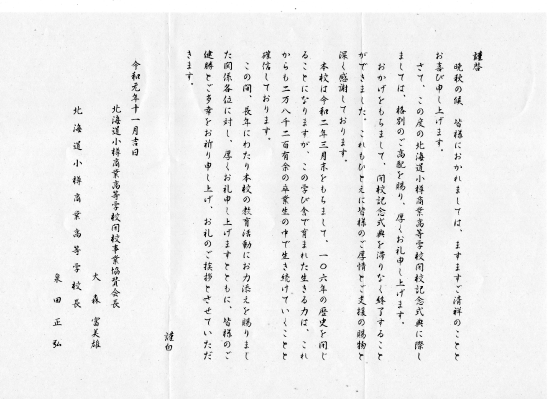 謹啓
晩秋の候　皆様におかれましては、ますますご清祥のことと
お喜び申し上げます。
さて、この度の北海道小樽商業高等学校閉校記念式典に際し
ましては、格別のご高配を賜り、厚くお礼申し上げます。
おかげをもちまして、閉校記念式典を滞りなく終了すること
ができました。これもひとえに皆様のご厚情とご支援の賜物と
深く感謝しております。
本校は令和二年三月末をもちまして、一〇六年の歴史を閉じ
ることになりますが、この学び舎で育まれた生きる力は、これ
からも二万八千二百有余の卒業生の中で生き続けていくことと
確信しております。
この間、長年にわたり本校の教育活動にお力添えを賜りまし
た関係各位に対し、厚くお礼申し上げますとともに、皆様のご
健勝とご多幸をお祈り申し上げ、お礼のご挨拶とさせていただ
きます。
謹白
令和元年十一月吉日
北海道小樽商業高等学校閉校事業協賛会長
大森　富美雄
北海道小樽商業高等学校長
泉田　正弘